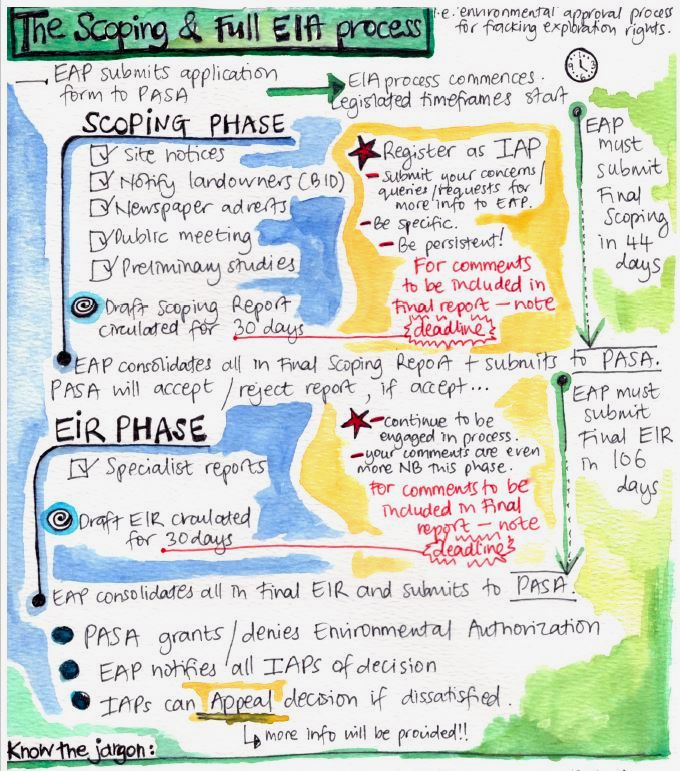 The Scoping & Full EIA process
i.e. environmental approval process
for fracking exploration rights.
EAP submits application
form to PASA
EIA process commences.
Legislated timeframes start
SCOPING PHASE
Site notices
Notify landowners (BID)
Newspaper adverts
Public meeting
Preliminary studies
Draft Scoping Report
circulated for 30 days
Register as IAP
- Submit your concerns/
queries/requests for
more info to EAP.
- Be specific.
- Be persistent!
For comments
to be included in
Final report - note
deadline
EAP
must
submit
Final
Scoping
in 44
days
EAP consolidates all in Final Scoping Report + submits to PASA.
PASA will accept/reject report, if accept...
EIR PHASE
Specialist reports
Draft EIR circulated
for 30 days
- continue to be
engaged in process.
- your comments are even
more NB this phase.
For comments to be
included in Final
report - note
deadline
EAP must
submit
Final EIR
in 106
days
EAP consolidates all in Final EIR and submits to PASA.
PASA grants/denies Environmental Authorization
EAP notifies all IAPs of decision
IAPs can Appeal decision if dissatisfied.
more info will be provided!!
Know the jargon: